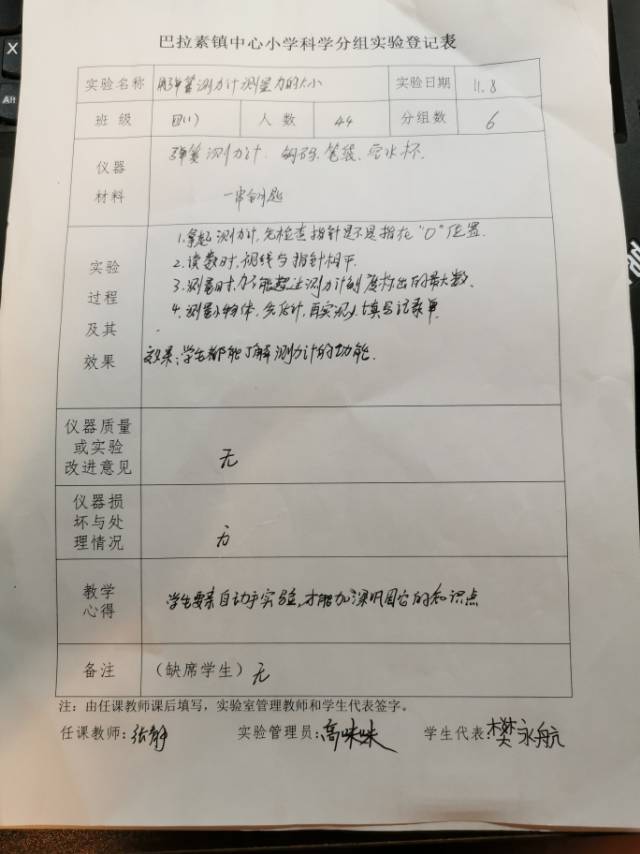 巴拉素镇中心小学科学分组实验登记表
实验名称 用弹簧测力计测量力的大小 实验日期 11.8
班级 四(1) 人数 44 分组数 6
仪器材料 弹簧测力计、钩码、笔袋、空水杯、
一串钥匙
实验过程及其效果
1.拿起测力计,先检查指针是不是指在"0"位置.
2.读数时,视线与指针相平.
3.测量时,力不能超过测力计刻度标出的最大数.
4.测量小物体,先估计,再实测,填写记录单.
效果:学生都能了解测力计的功能.
仪器质量或实验改进意见 无
仪器损坏与处理情况
教学心得 学生要亲自动手实验,才能加深巩固它的知识点
备注 (缺席学生) 无
注:由任课教师课后填写,实验室管理教师和学生代表签字。
任课教师:张静 实验管理员:高妹妹 学生代表:樊永航
X
Alt